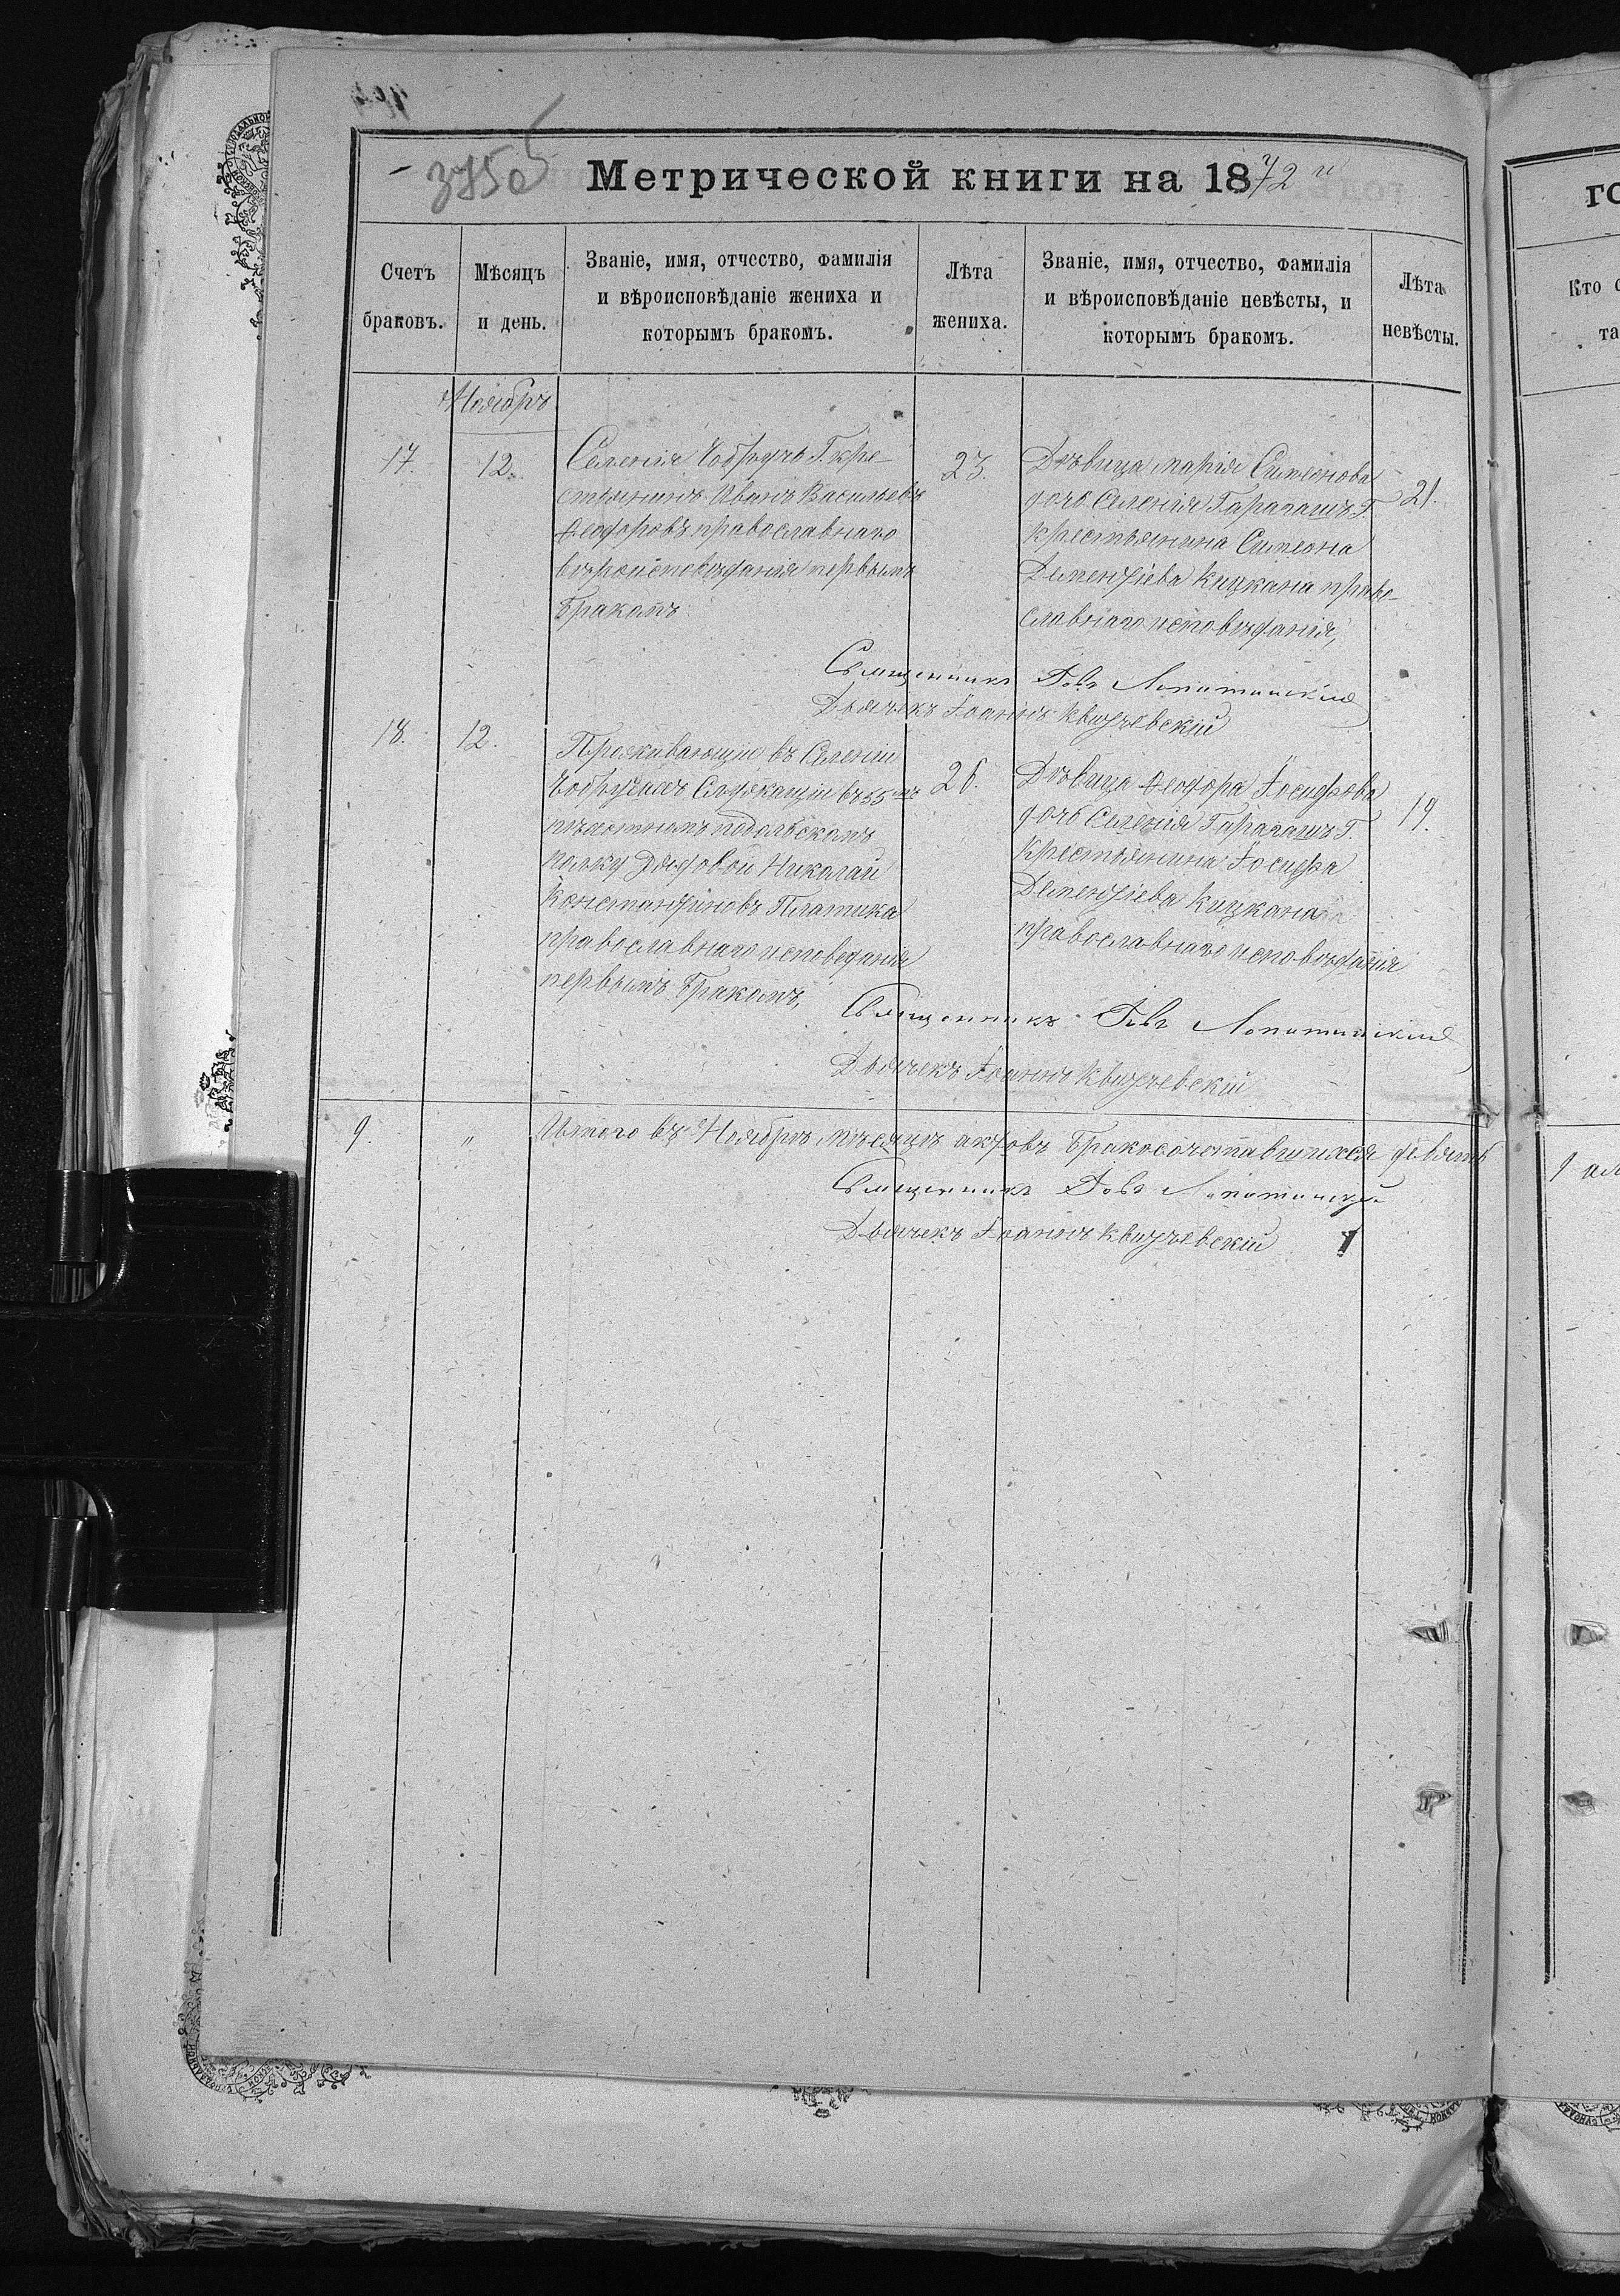 3755
Метрической книги на 1872 й
Счетъ браковъ.
Мѣсяцъ и день.
Званіе, имя, отчество, фамилія
и вѣроисповѣданіе жениха и
которымъ бракомъ.
Лѣта жениха.
Званіе, имя, отчество, фамилія
и вѣроисповѣданіе невѣсты, и
которымъ бракомъ.
Лѣта невѣсты.
го
Кто с
та
Ноябръ
17.
12.
Селенія Чобручъ Г. кре-
стьянинъ Иванъ Васильевъ
Ѳеодоровъ православнаго
вѣроисповѣданія первымъ
бракомъ
23.
Дѣвица Марія Симеонова
дочь Селенія Гарагашъ Г.
крестьянина Симеона
Дементіева Кицкана право-
славнаго исповѣданія,
21.
Священникъ Іовъ Лопатинскій
Дьячекъ Іоаннъ Квизчевскій
18.
12.
Проживающи въ Селеніи
Чобручахъ Служащій въ 55мъ
пѣхотномъ подольскомъ
полку рядовой Николай
Константиновъ Платика
православнаго исповеданія
первымъ бракомъ,
26.
Дѣвица Ѳеодора Іосифова
дочь Селенія Гарагашъ Г.
крестьянина Іосифа
Дементіева Кицкана
православнаго исповѣданія
19.
Священникъ Іовъ Лопатинскій
Дьячекъ Іоаннъ Квизчевскій
9.
"
Итого въ Ноябрѣ мѣсяцѣ актовъ бракосочетавшихся девять
Священникъ Іовъ Лопатинскій
Дьячекъ Іоаннъ Квизчевскій